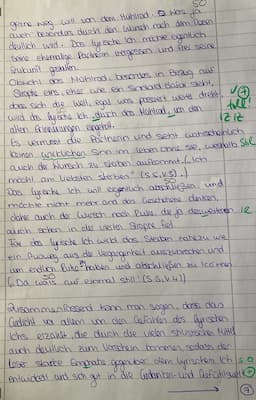 SO
gerne weg will von dem Mühlrad. Dies ja
auch besonders durch den Wunsch nach dem Sterben
deutlich wird. Das lyrische Ich möchte eigentlich
seine ehemalige Partnerin vergessen und frei seine
Zukunft gestalten.
Obwohl das Mühlrad, besonders in Bezug auf
Strophe eins, eher wie ein Symbol dafür steht,
dass sich die Welt, egal was passiert weiter dreht,
wird das lyrische Ich durch das Mühlrad, an den
alten Erinnerungen
Es vermisst die Partnerin und sieht wahrscheinlich
keinen wirklichen Sinn im Leben ohne sie, weshalb
auch der Wunsch zu sterben aufkommt („Ich
möcht' am liebsten sterben" (S.5, V.3).)
Das lyrische Ich will eigentlich abschließen und
möchte nicht mehr an das Geschehene denken,
daher auch der Wunsch nach Ruhe, die ja desweiteren
auch schon in der vierten Strophe fiel.
Für das lyrische Ich wird das Sterben nahezu wie
ein Ausweg aus der Vergangenheit auszubrechen und
um endlich Ruhe haben und abschließen zu können
(„Da wär's auf einmal still" (S.5, V.4))
Zusammenfassend kann man sagen, dass das
Gedicht vor allem von den Gefühlen des lyrischen
Ichs erzählt, die durch die vielen stilistischen Mittel
auch deutlich zum Vorschein kommen, sodass der
Leser starke Empathie gegenüber dem lyrischen Ich
entwickelt und sich gut in die Gedanken- und Gefühlswelt
7